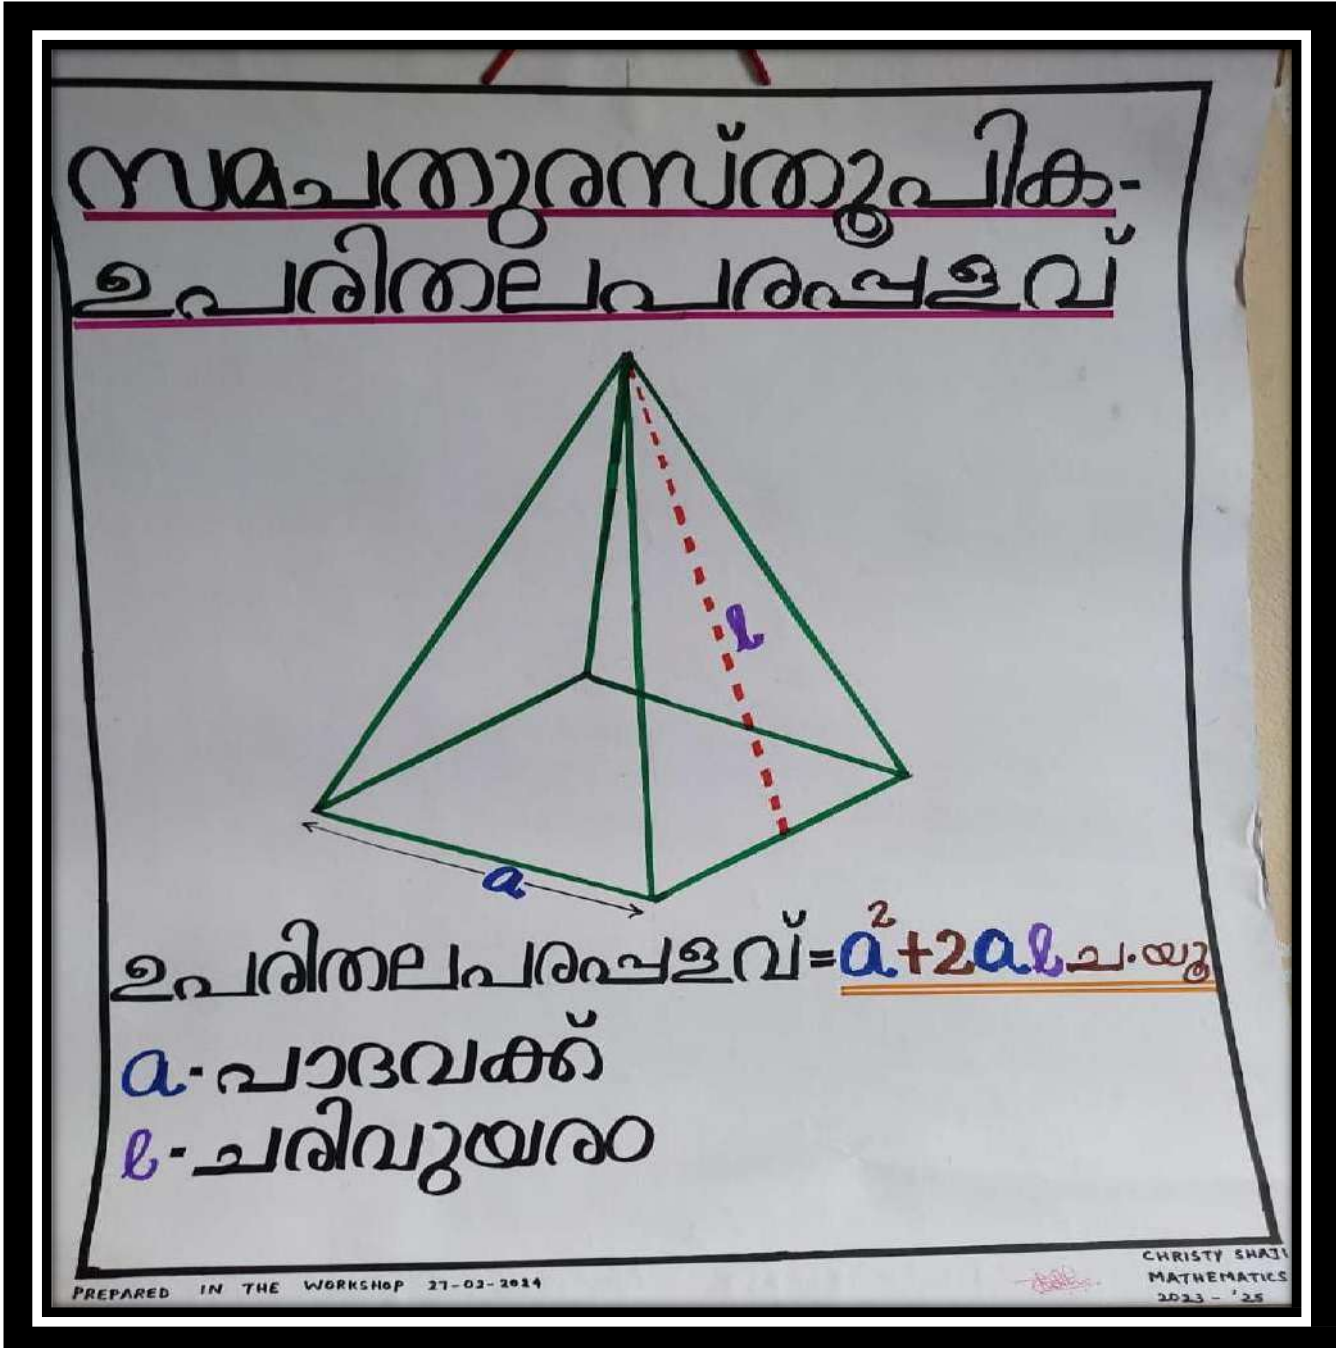 സമചതുരസ്തൂപിക-
ഉപരിതലപരപ്പളവ്
l
a
ഉപരിതലപരപ്പളവ്=a²+2al ച.യൂ
a-പാദവക്ക്
l-ചരിവുയരം
PREPARED IN THE WORKSHOP 27-02-2024
CHRISTY SHAJI
MATHEMATICS
2023-'25